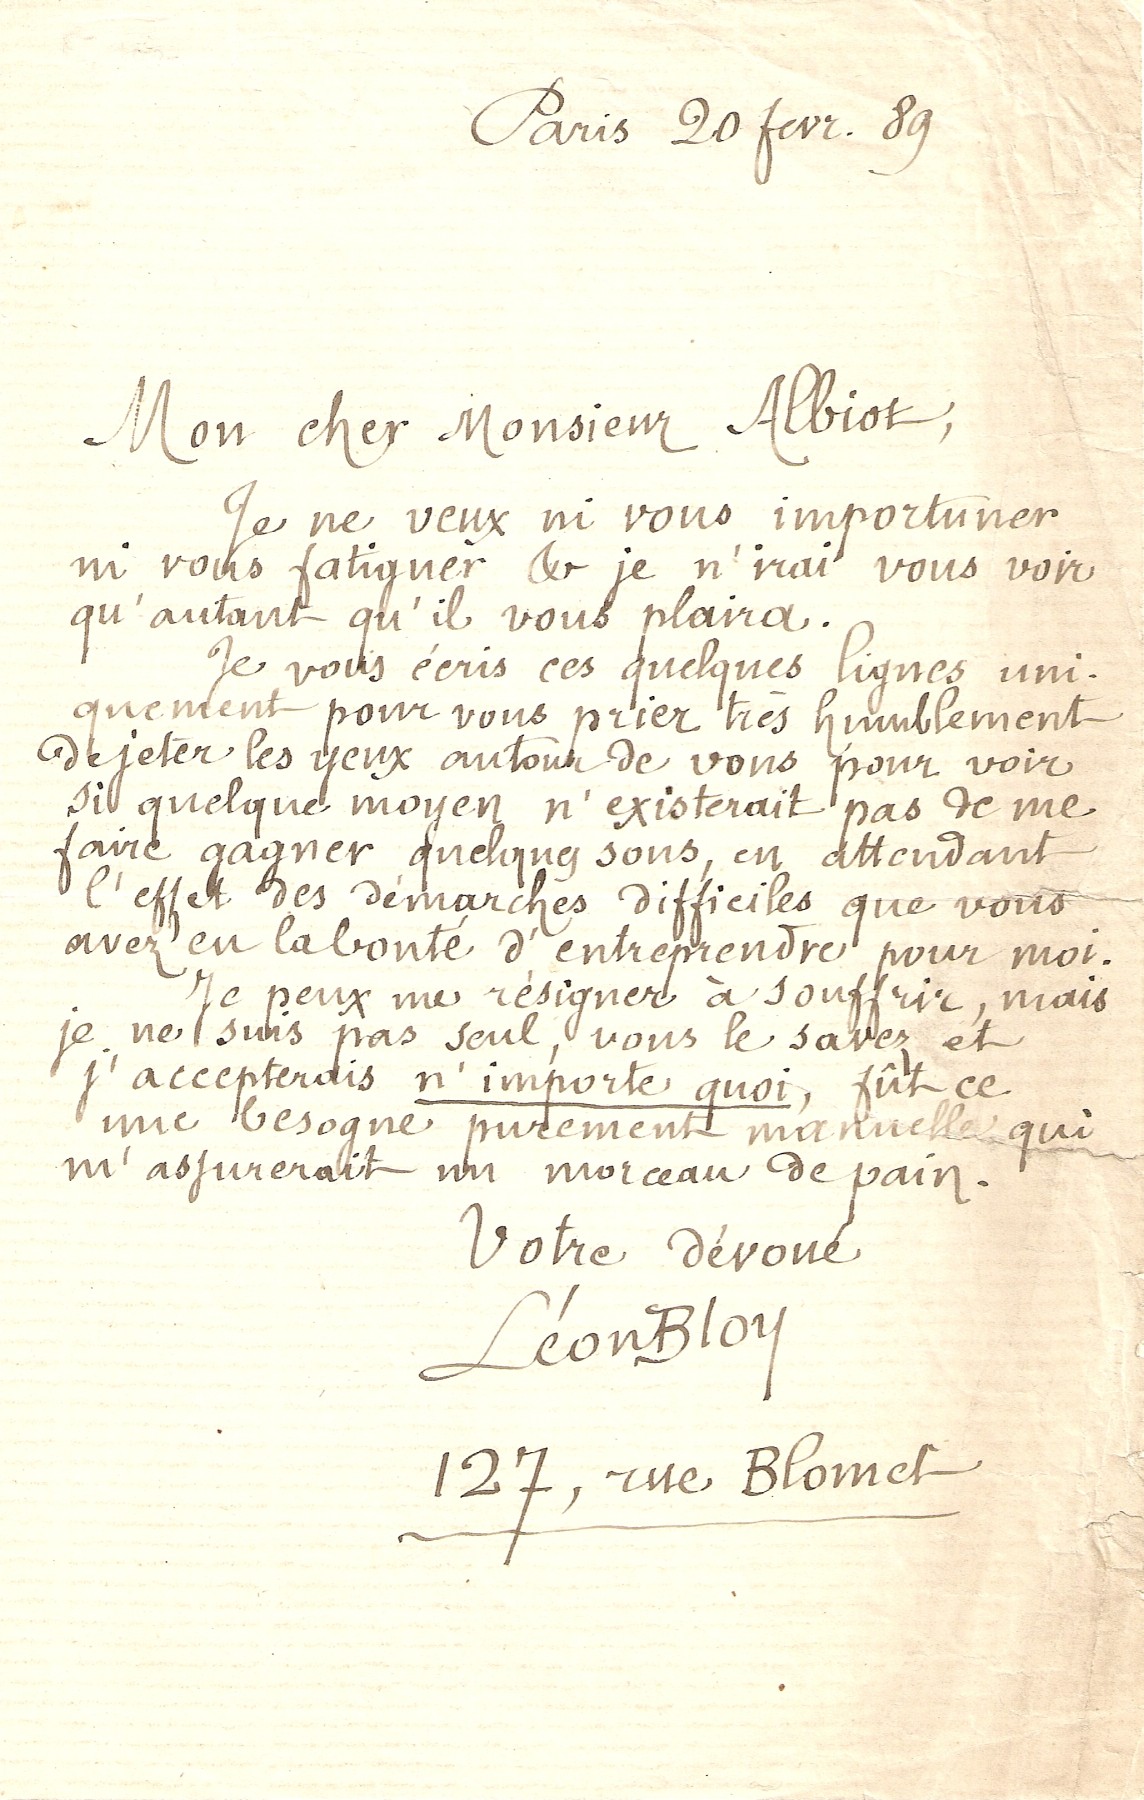 Paris 20 fevr. 89
Mon cher Monsieur Albiot,
Je ne veux ni vous importuner
ni vous fatiguer & je n'irai vous voir
qu'autant qu'il vous plaira.
Je vous écris ces quelques lignes uni-
quement pour vous prier très humblement
de jeter les yeux autour de vous pour voir
si quelque moyen n'existerait pas de me
faire gagner quelques sous, en attendant
l'effet des démarches difficiles que vous
avez eu la bonté d'entreprendre pour moi.
Je peux me résigner à souffrir, mais
je ne suis pas seul, vous le savez et
j'accepterais n'importe quoi, fût ce
une besogne purement manuelle qui
m'assurerait un morceau de pain.
Votre dévoué
Léon Bloy
127, rue Blomet